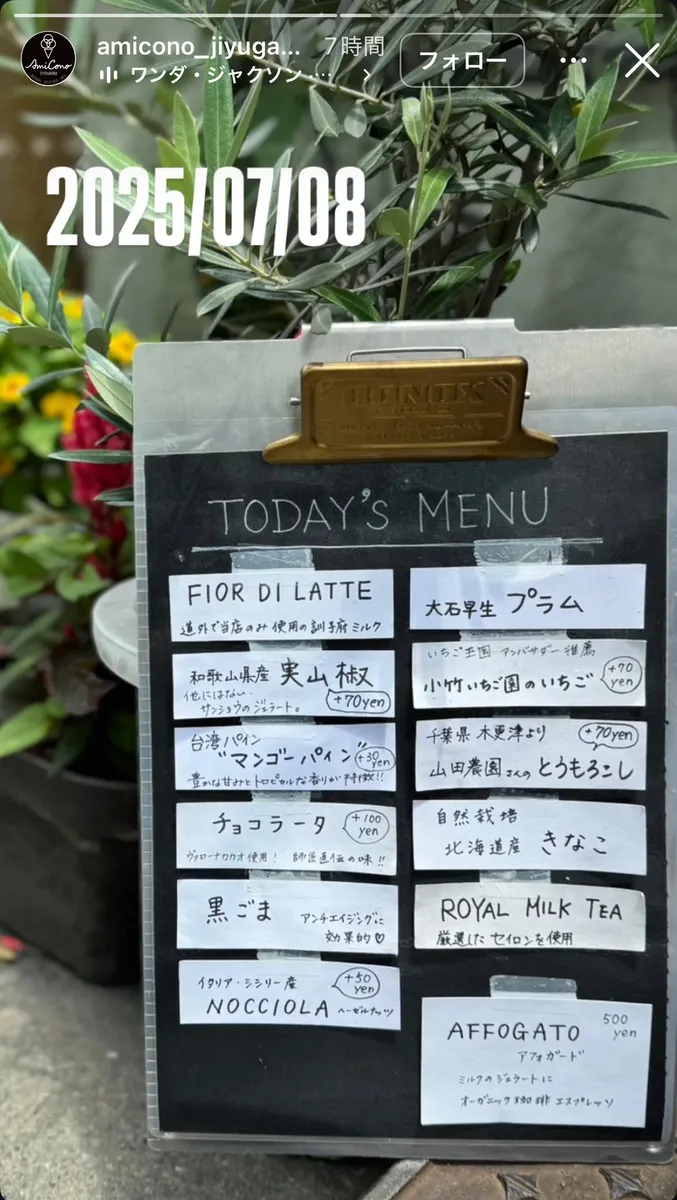 amicono_jiyuga... 7時間
フォロー
ワンダ・ジャクソン・...
AmiCono
2025/07/08
TODAY'S MENU
FIOR DI LATTE
道外で当店のみ使用の訓子府ミルク
和歌山県産 実山椒
他にはない、
サンショウのジェラート。
+70yen
台湾パイン
"マンゴーパイン"
+30yen
豊かな甘みとトロピカルな香りが特徴!!
チョコラータ
+100
yen
ヴァローナカカオ使用! 師匠直伝の味!!
黒ごま
アンチエイジングに
効果的♡
イタリア・シシリー産
+50
yen
NOCCIOLA ヘーゼルナッツ
大石早生 プラム
いちご王国 アンバサダー推薦
小竹いちご園のいちご
+70
yen
千葉県 木更津より
+70yen
山田農園さんの とうもろこし
自然栽培
北海道産 きなこ
ROYAL MILK TEA
厳選したセイロンを使用
AFFOGATO
500
yen
アフォガード
ミルクのジェラートに
オーガニック珈琲エスプレッソ